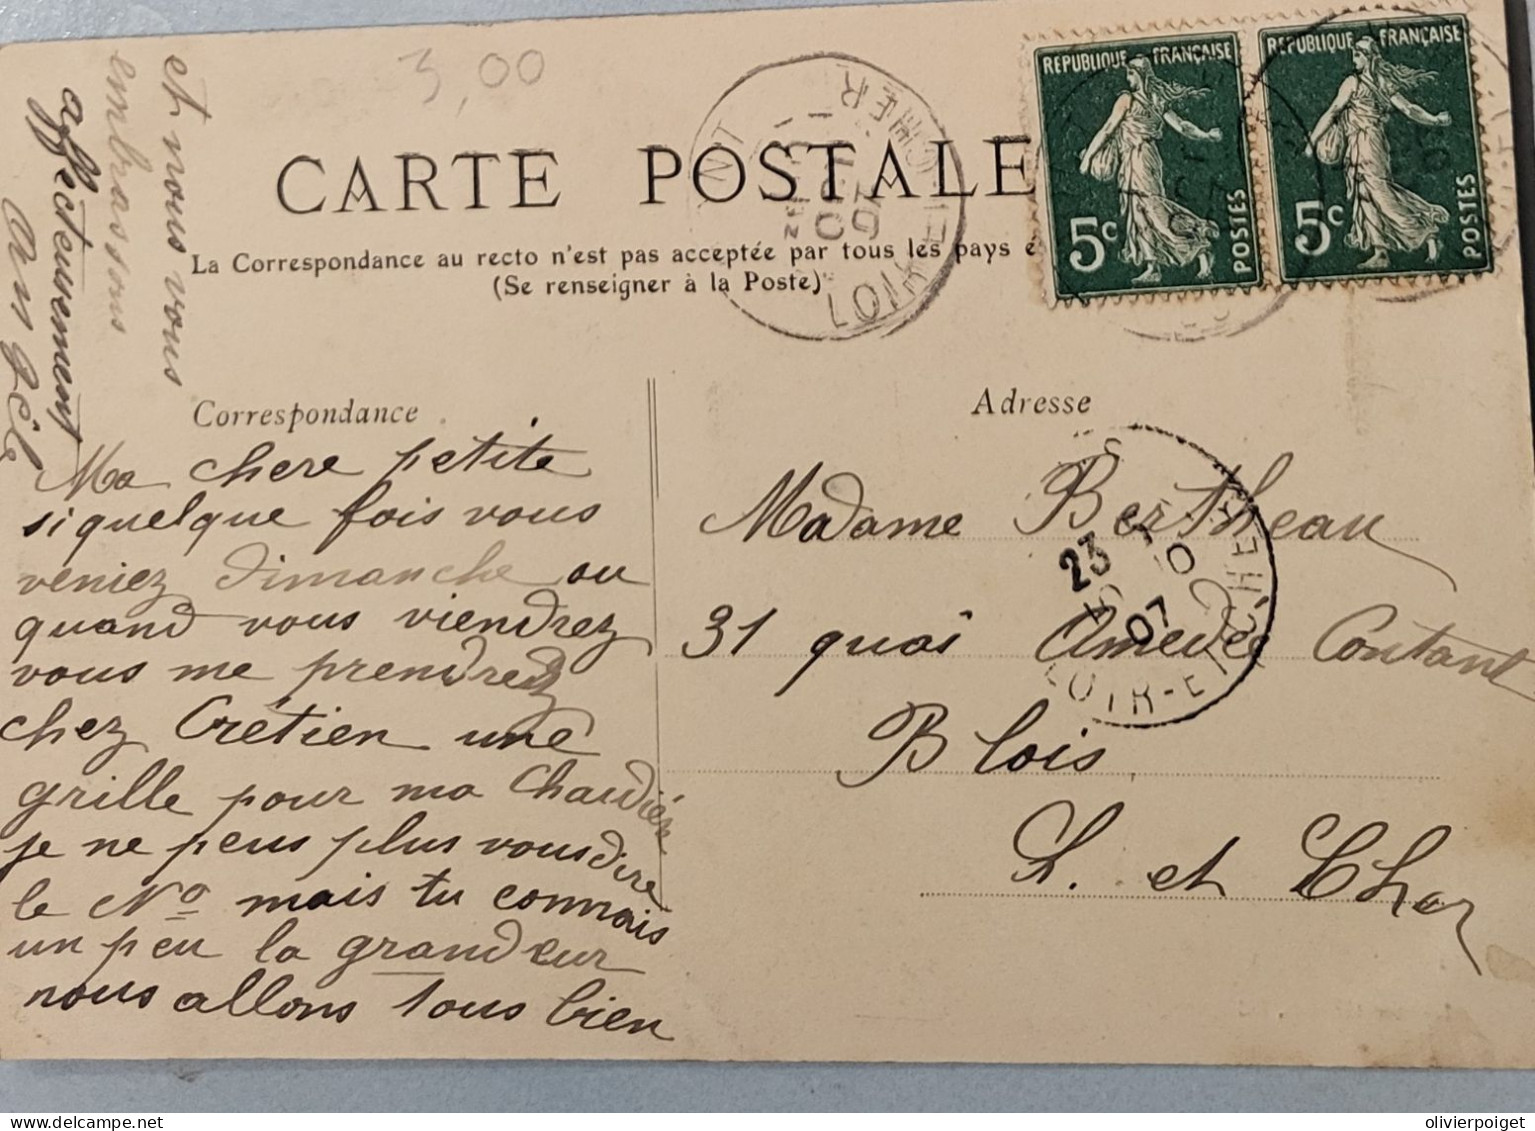 3,00
CARTE POSTALE
La Correspondance au recto n'est pas acceptée par tous les pays é
(Se renseigner à la Poste)
REPUBLIQUE FRANÇAISE
5c
POSTES
REPUBLIQUE FRANÇAISE
5c
POSTES
Correspondance
Ma chere petite
si quelque fois vous
veniez dimanche ou
quand vous viendrez
vous me prendrez
chez Crétien une
grille pour ma
je ne peus plus vous dire
le No mais tu connais
un peu la grandeur
nous allons tous bien
et nous vous
embrassons
affecteusement
Adresse
Madame Bertheau
31 quai Amedée Contant
Blois
L. et Cher
23
10
07
LOIR-ET-CHER
olivierpoiget